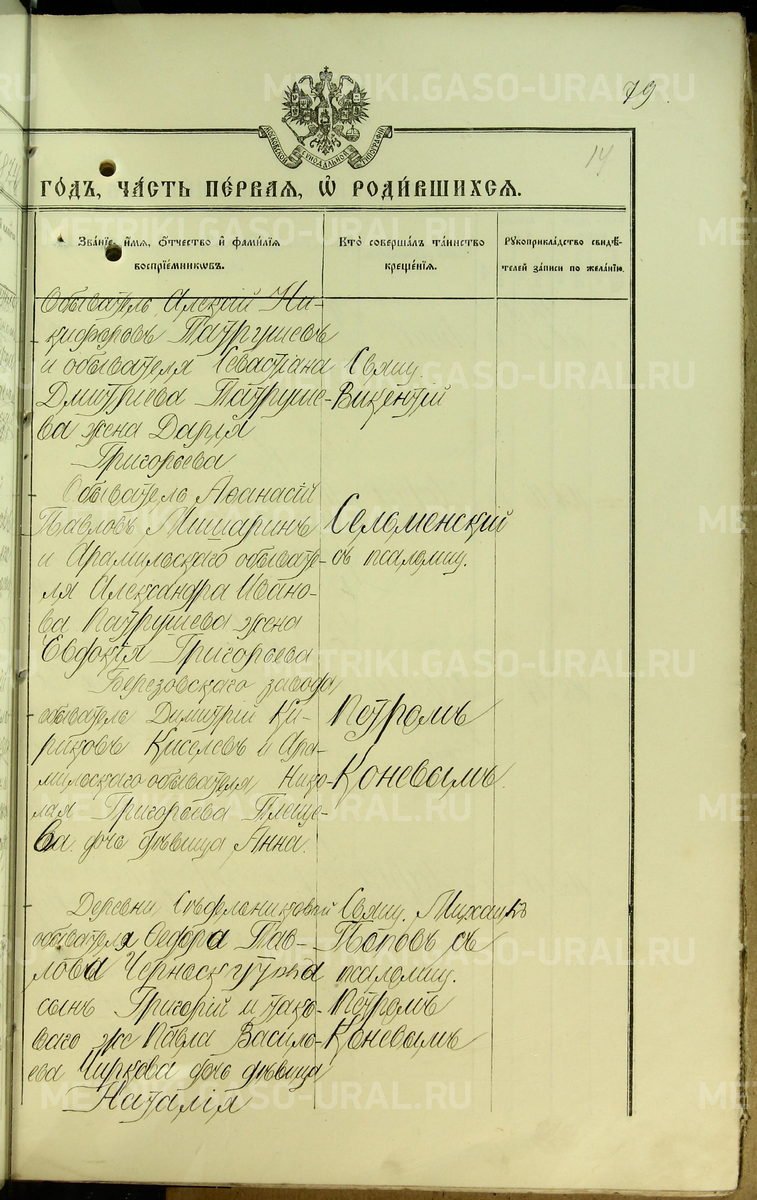 79.
14
МОСКОВСКОЙ СѴНОДАЛЬНОЙ ТИПОГРАФІИ
ГО́ДЪ, ЧА́СТЬ ПЕ́РВАЯ, Ѽ РОДИ́ВШИХСЯ.
Зва́нїе, и́мя, ѻ́тчество и҆ фами́лїя
воспрїе́мникѡвъ.
Кто̀ соверша́лъ та́инство
креще́нїя.
Рꙋкоприкла́дство свидѣ́-
телей за́писи по жела́нїю.
Обыватель Алексій Ни-
кифоровъ Патрушевъ
и обывателя Севастіана
Дмитріева Патруше-
ва жена Дарія
Григорьева
Свящ.
Викентій
Обыватель Аѳанасій
Павловъ Мишаринъ
и Арамильскаго обывате-
ля Александра Ивано-
ва Патрушева жена
Евдокія Григорьева
Селеменскій
съ псаломщ.
Березовскаго завода
обыватель Димитрій Ки-
риковъ Киселевъ и Ара-
мильскаго обывателя Нико-
лая Григорьева Плеще-
ва дочь дѣвица Анна.
Петромъ
Коневымъ.
Деревни
обывателя Ѳедора Пав-
лова
сынъ Григорій и тако-
ваго же Павла Василь-
ева Чиркова дочь дѣвица
Наталія
Свящ. Михаилъ
Поповъ съ
псаломщ.
Петромъ
Коневымъ
METRIKI.GASO-URAL.RU